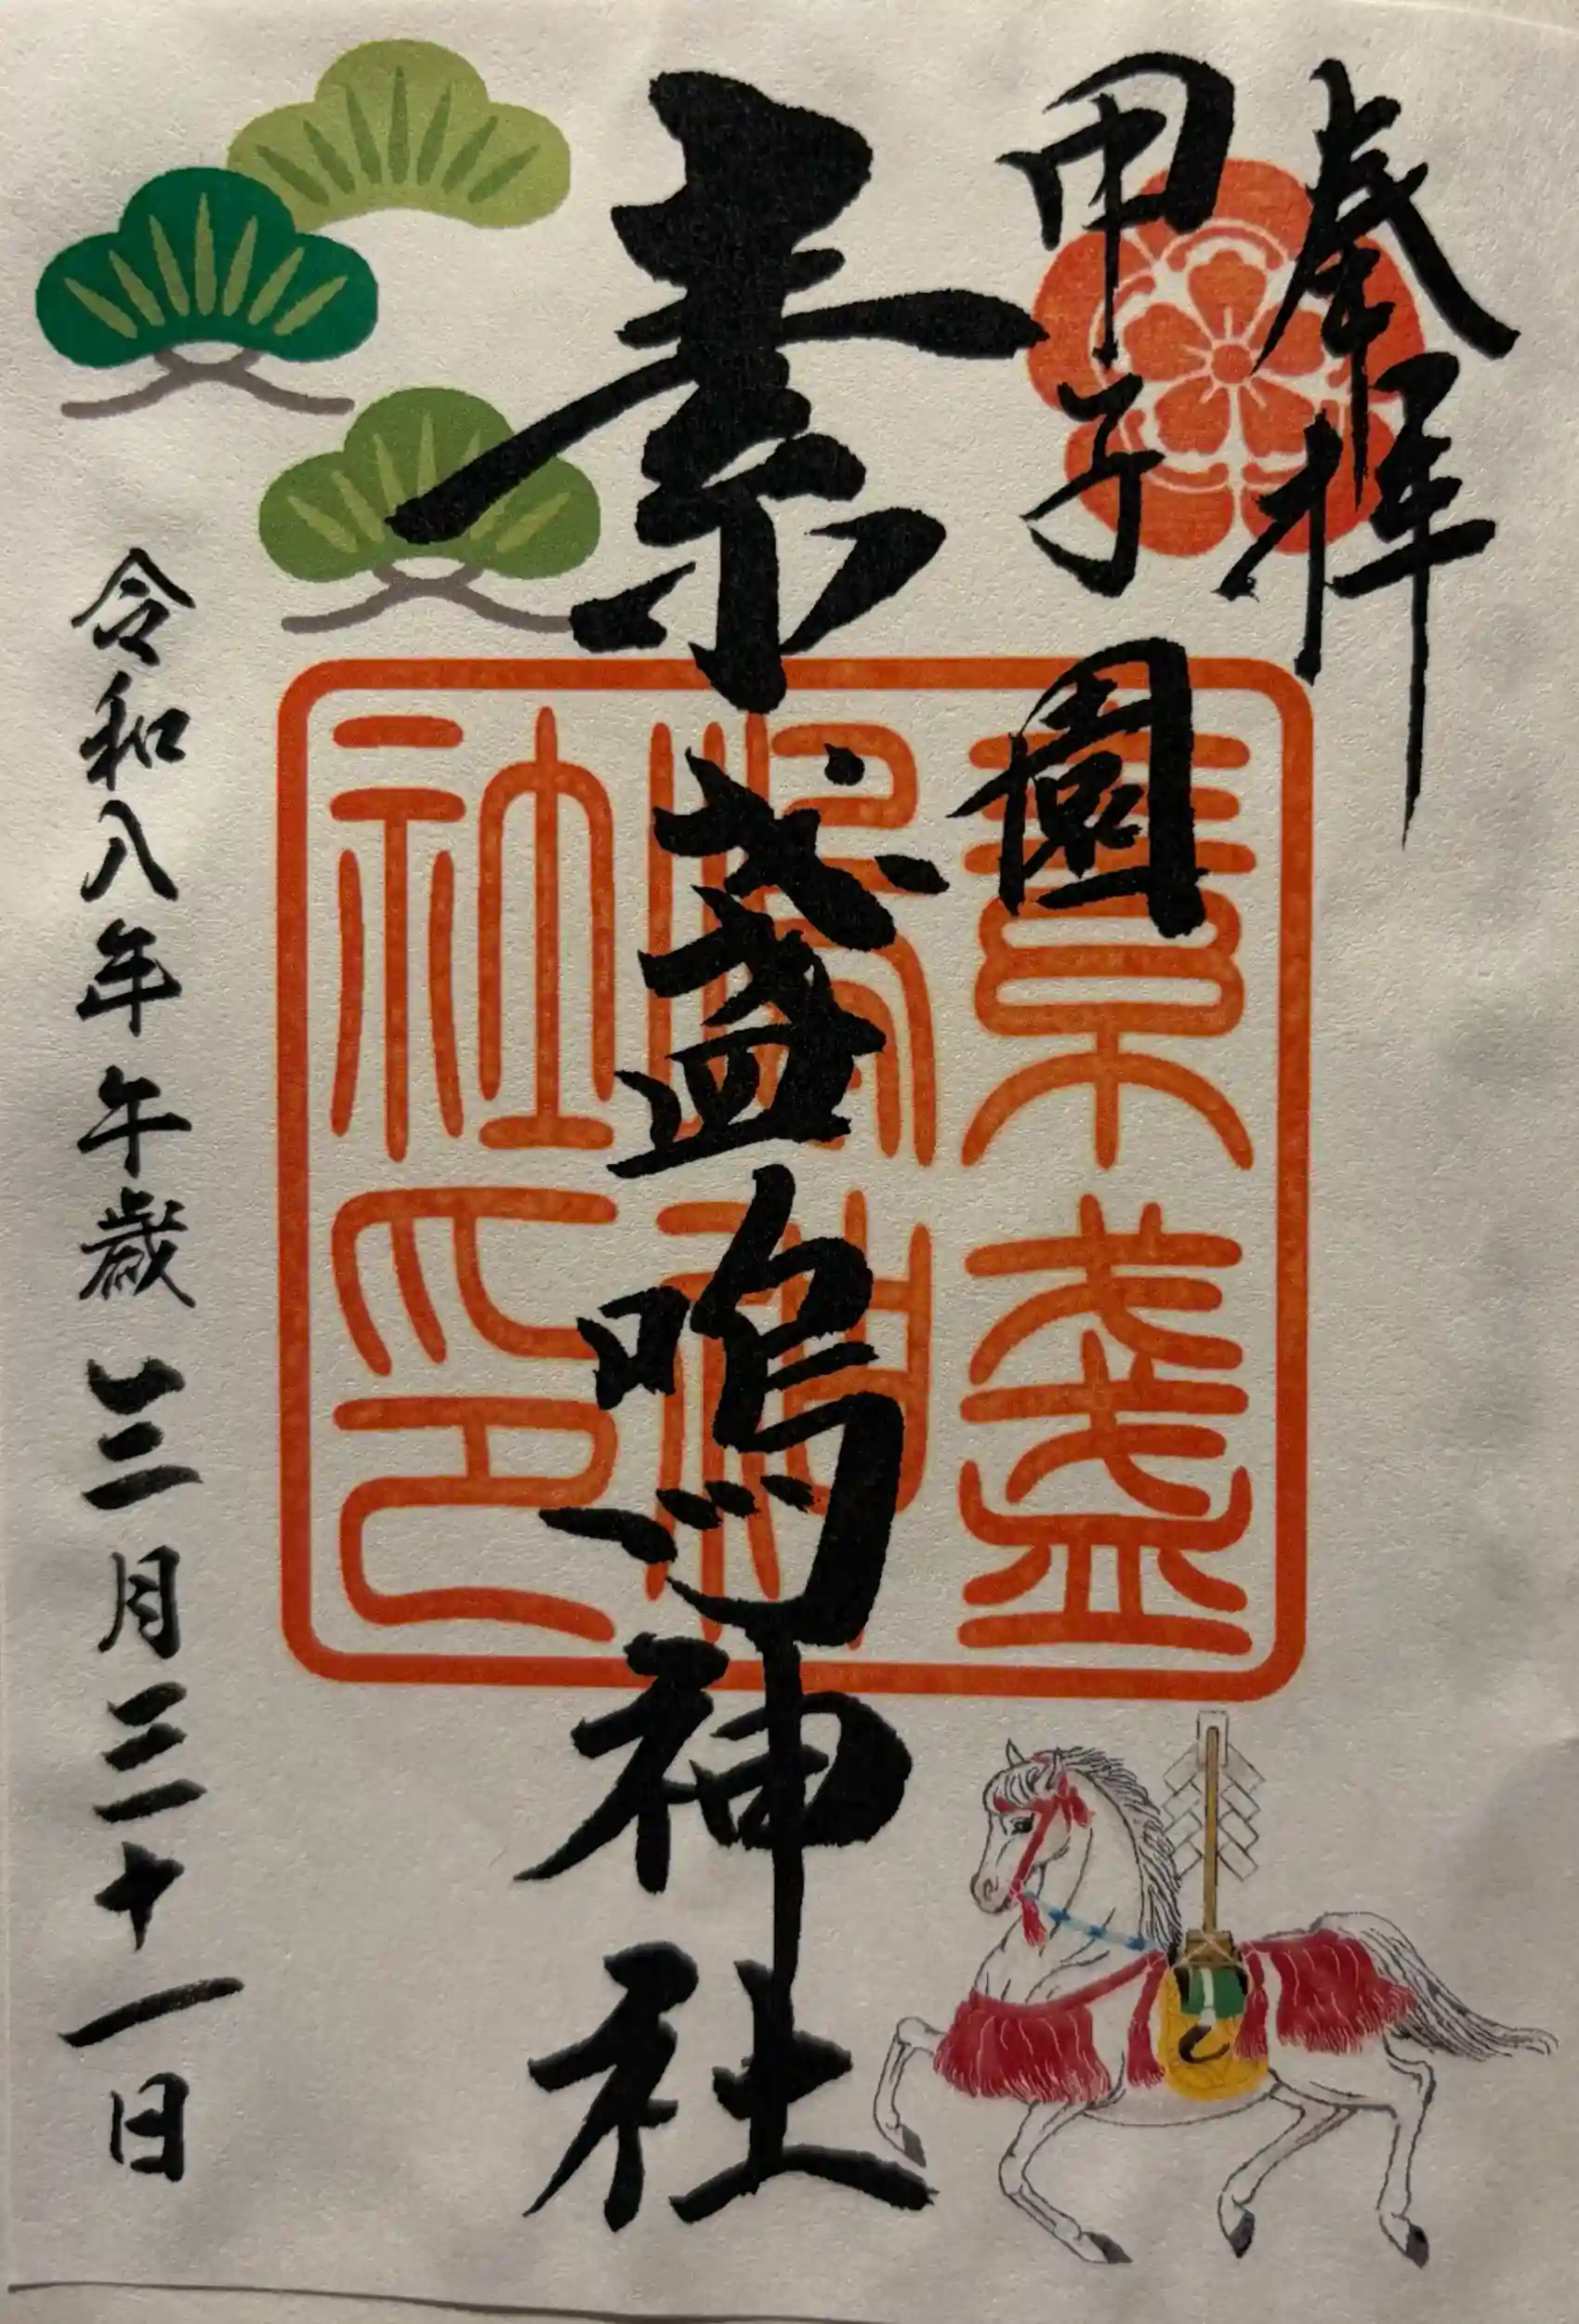 奉拝
甲子園
素盞嗚神社
令和八年午歳 三月三十一日
素盞
嗚神
社印